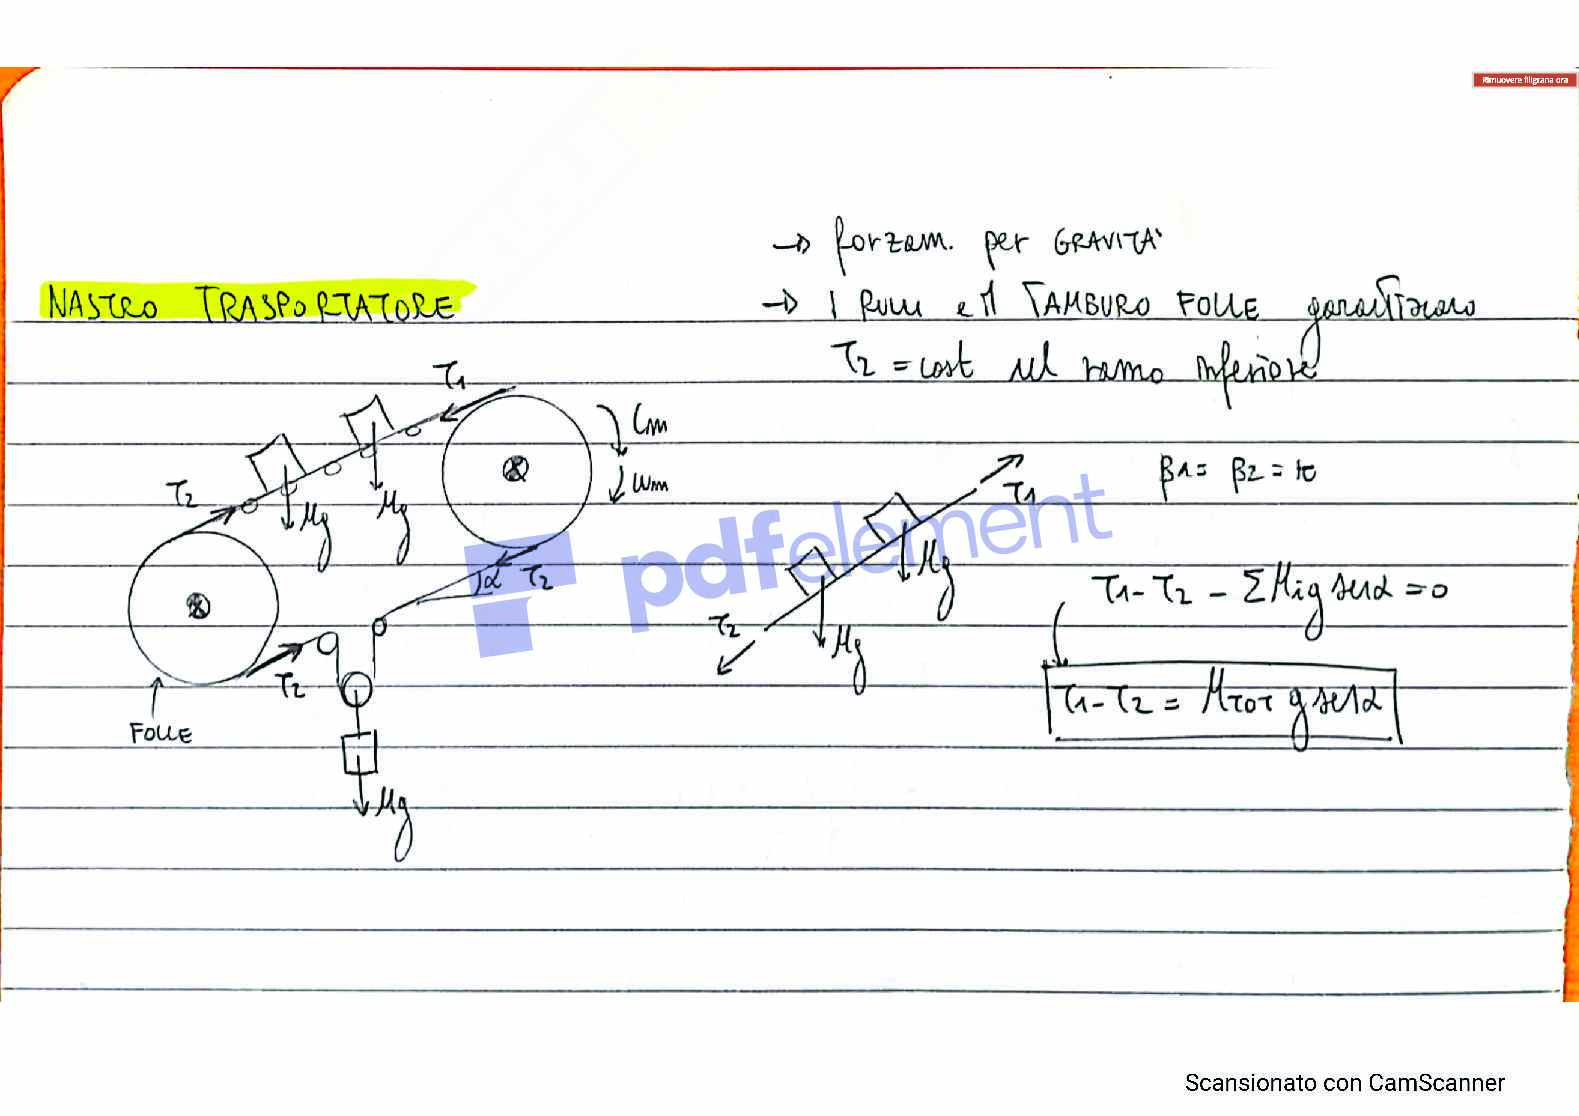 Rimuovere filigrana ora
→ forzam. per GRAVITÀ
NASTRO TRASPORTATORE
→ I RULLI e il TAMBURO FOLLE garantiscono
T2 = cost nel ramo inferiore
T1
Cm
ωm
T2
Mg
Mg
α
T2
T2
FOLLE
Mg
T1
Mg
T2
Mg
β1 = β2 = π
T1 - T2 - ΣMig senα = 0
T1 - T2 = MTOT g senα
pdfelement
Scansionato con CamScanner